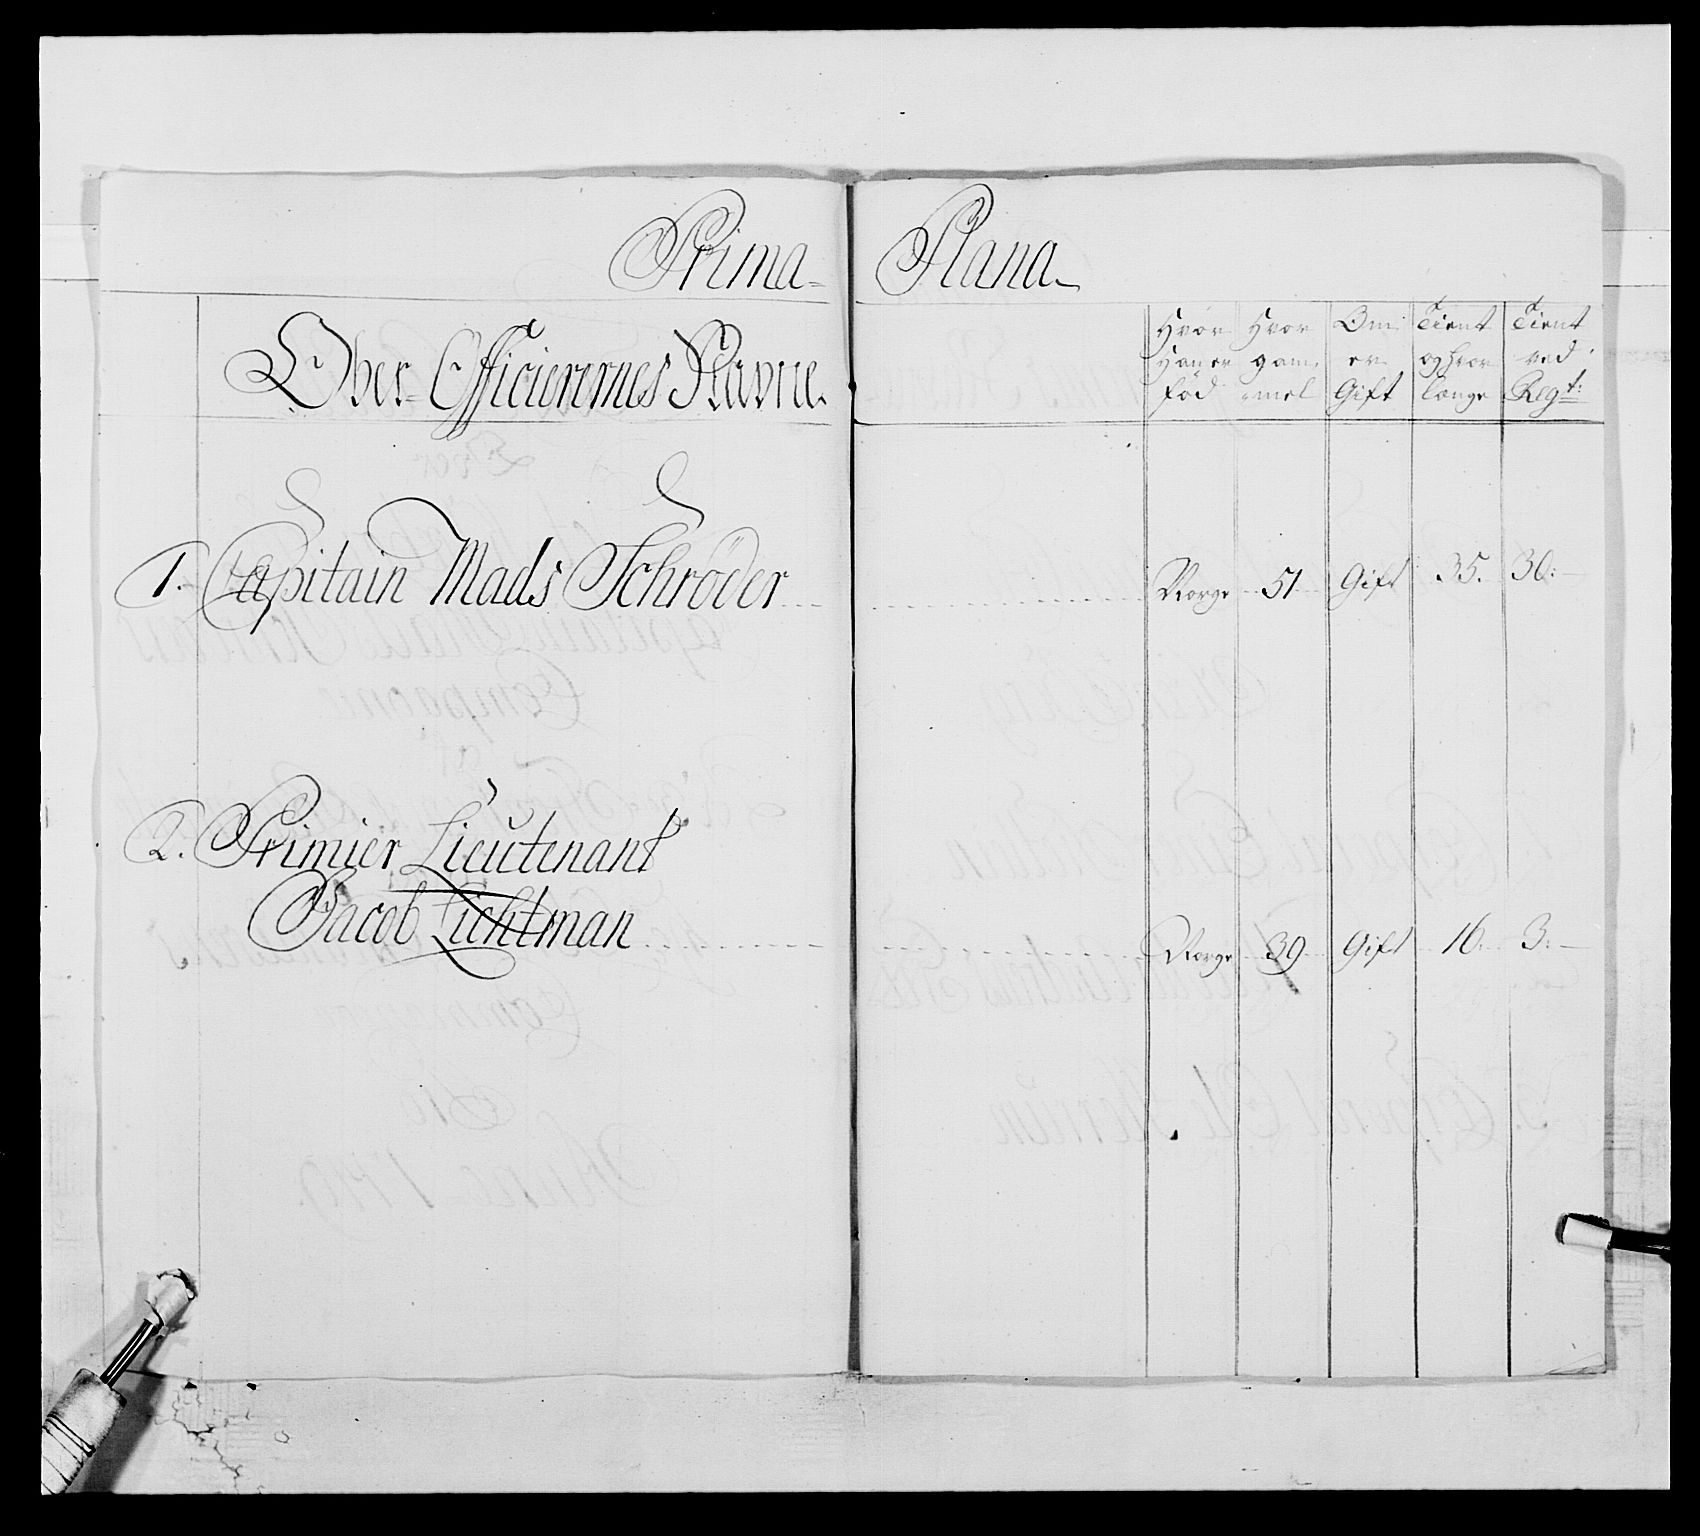 Prima= Plana.
Ober- Officierernes Navne.
Hvor Han er fød
Hvor gam= mel
Om er Gift
Tient og hvor længe
Tient ved Regt:
1. Capitain Mads Schröder Norge 51 Gift 35. 30:
2. Primier Lieutenant
Jacob Lichtman Norge 39 Gift 16. 3: